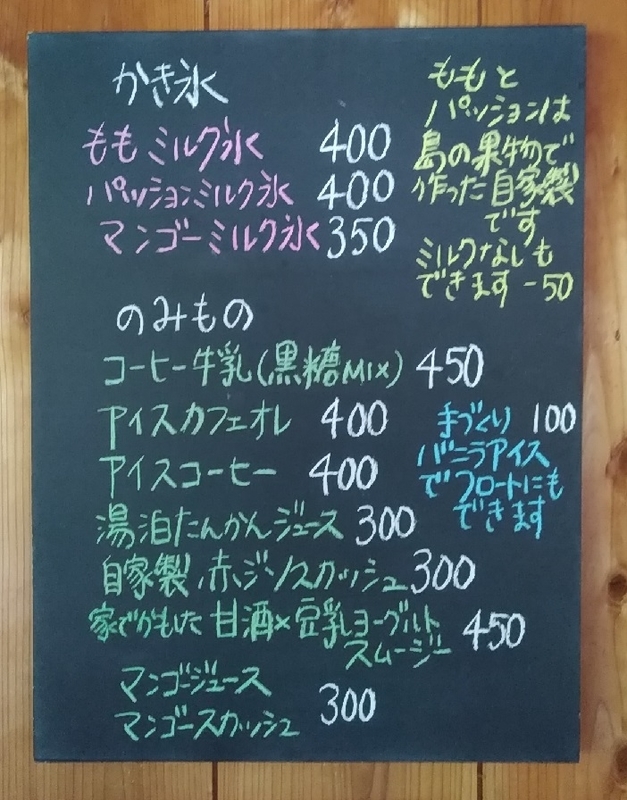 かき氷
ももミルク氷 400
パッションミルク氷 400
マンゴーミルク氷 350
ももと
パッションは
島の果物で
作った自家製
です
ミルクなしも
できます -50
のみもの
コーヒー牛乳(黒糖MIX) 450
アイスカフェオレ 400
アイスコーヒー 400
手づくり 100
バニラアイス
でフロートにも
できます
湯泊たんかんジュース 300
自家製 赤ジソスカッシュ 300
家でかもした 甘酒×豆乳ヨーグルト
スムージー 450
マンゴージュース
マンゴースカッシュ 300